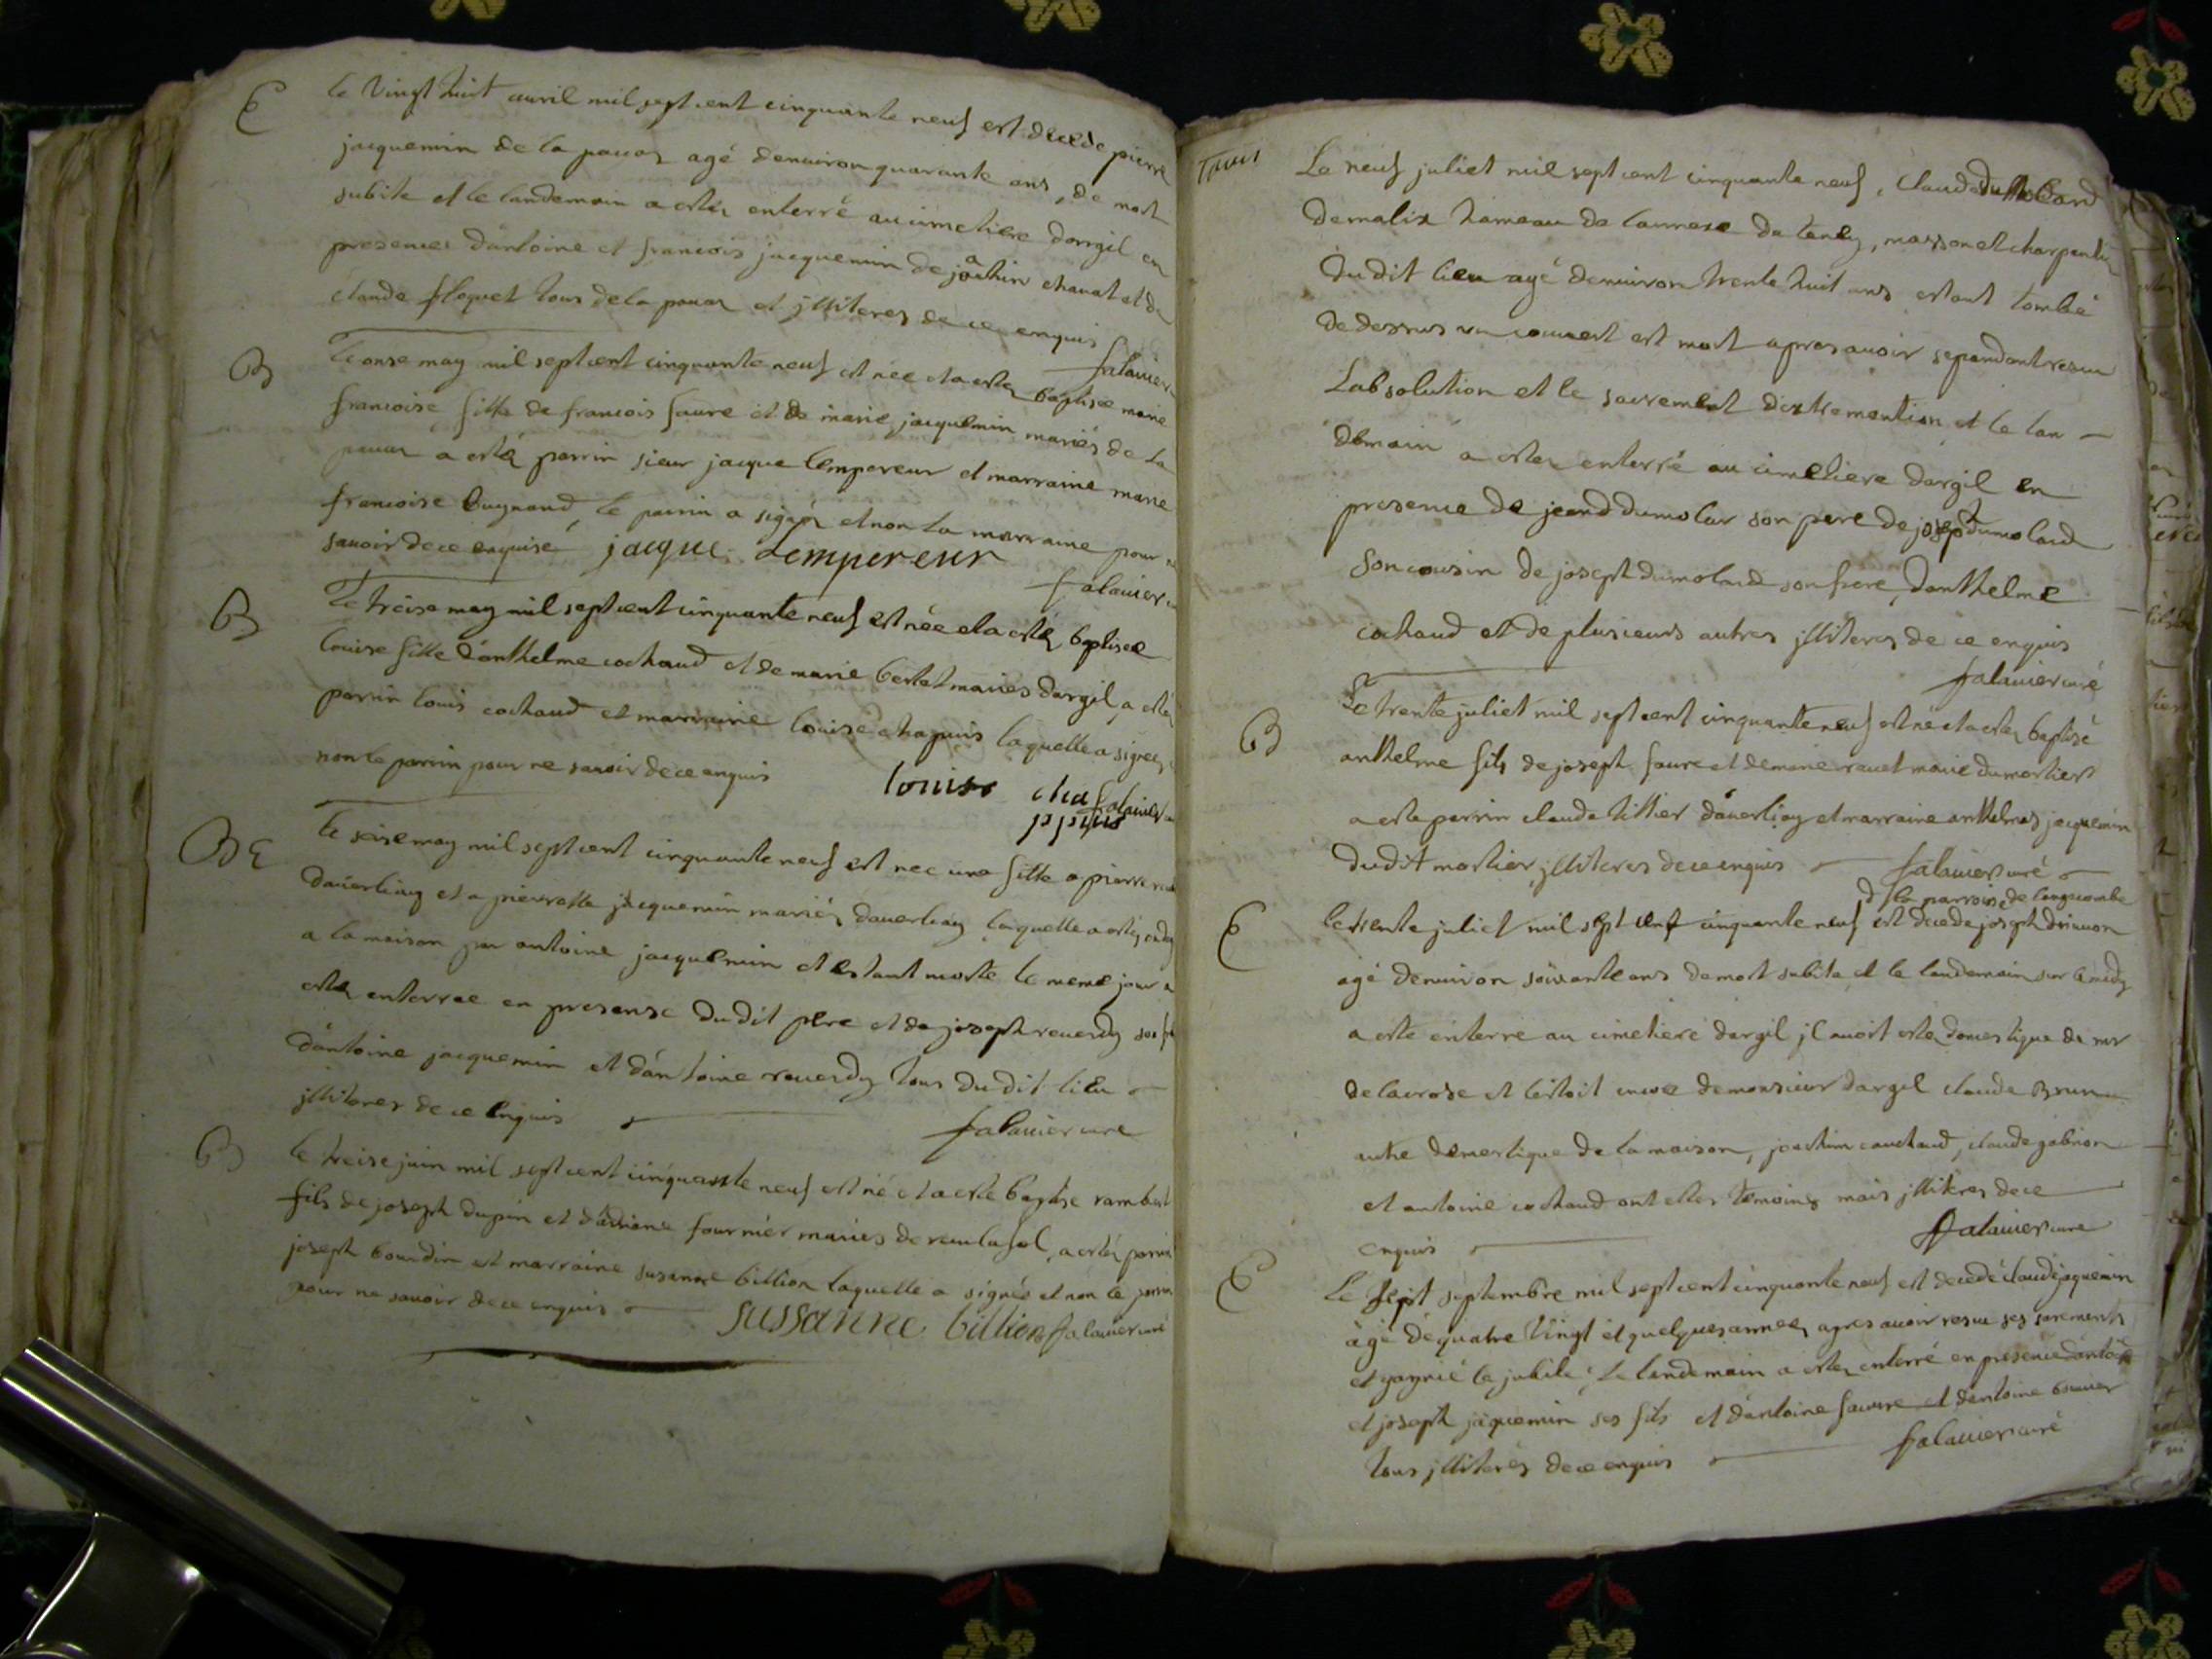 E le vingt huit avril mil sept cent cinquante neuf est decede pierre
jacquemin de la agé denviron quarante ans, de mort
subite et le landemain a estez enterré au cimetiere dargil en
presences dantoine et francois jacquemin de joachin et de
claude floquet tous de la et jlliteres de ce enquis
falavier
B le onse may mil sept cent cinquante neuf est née et a estez baptisee marie
francoise fille de francois faure et de marie jacquemin mariés de la
a estéz parrin sieur jacque lempereur et marraine marie
francoise bugnand, le parrin a signéz et non la marraine pour
savoir de ce enquise jacque Lempereur
falavier
B le treise may mil sept cent cinquante neuf est née et a estéz baptisee
louise fille danthelme cochaud et de marie bertet mariés dargil a estéz
parrin louis cochaud et marraine louise chapuis laquelle a signee
non le parrin pour ne savoir de ce enquis
louise cha
ppuis falavier
BE le seise may mil sept cent cinquante neuf est nee une fille a pierre
daverliay et a pierrette jacquemin mariéz daverliay laquelle a estéz
a la maison par antoine jacquemin et estant morte le meme jour a
estéz enterree en presense du dit pere et de joseph reverdy son
dantoine jacquemin et dantoine reverdy tous du dit lieu
jlliteres de ce enquis
falavier curé
B le treise juin mil sept cent cinquante neuf est né et a esté baptise rambert
fils de joseph dupin et dadriane fournier mariés de a estéz parrin
joseph bourdin et marraine susanne billion laquelle a signée et non le parrin
pour ne savoir de ce enquis sussanne billion falavier curé
Le neuf juliet mil sept cent cinquante neuf, claude dumolard
de malix hameau de de tency, masson et charpentier
du dit lieu agé denviron trente huit ans estant tombé
de dessus un couvert est mort apres avoir sependant reseu
Labsolution et le sacrement dextremontion et le lan
demain a estez enterré au cimetiere dargil en
presence de jean dumolar son pere de joseph dumolard
son cousin de joseph dumolard son frere, danthelme
cochaud et de plusieurs autres jlliteres de ce enquis
falavier curé
B Le trente juliet mil sept cent cinquante neuf est né et a estez baptisé
anthelme fils de joseph faure et de marie ravet mariés du mortier
a esté parrin claude tillier daverliay et marraine anthelmaz jacquemin
du dit mortier jlliteres de ce enquis falavier curé
de la parroise de longecombe
E le trente juliet mil sept cent cinquante neuf est decede joseph
agé denviron soixante ans de mort subite et le landemain sur le midy
a esté enterré au cimetiere dargil jl avoit estez domestique de mr
delacrose et lestoit encor de monsieur dargil claude Brun
autre domestique de la maison, joachim cauchaud, claude gabrion
et antoine cochaud ont estez temoins mais jlliteres de ce
enquis
falavier curé
E Le sept septembre mil sept cent cinquante neuf est decedé claude jaquemin
agé de quatre vingt et quelques annees apres avoir reseu ses sacrements
et gagnié le jubilé, le lendemain a estez enterré en presence dantoine
et joseph jaquemin ses fils et dantoine faure et dantoine bouvier
tous jlliterés de ce enquis
falavier curé